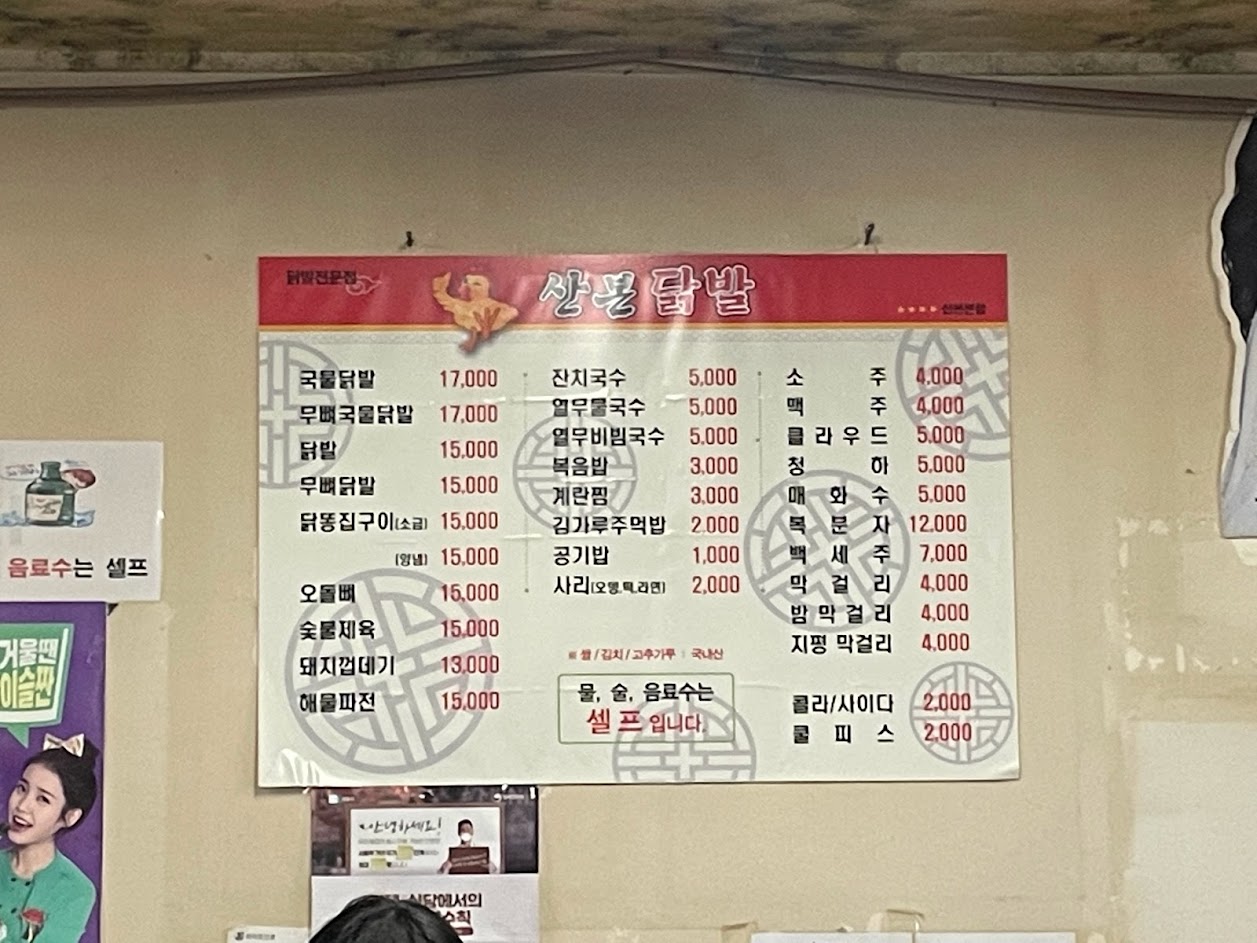 닭발전문점
산본닭발
산본본점
국물닭발 17,000
무뼈국물닭발 17,000
닭발 15,000
무뼈닭발 15,000
닭똥집구이(소금) 15,000
(양념) 15,000
오돌뼈 15,000
숯불제육 15,000
돼지껍데기 13,000
해물파전 15,000
잔치국수 5,000
열무물국수 5,000
열무비빔국수 5,000
볶음밥 3,000
계란찜 3,000
김가루주먹밥 2,000
공기밥 1,000
사리(오뎅,떡,라면) 2,000
※ 쌀 / 김치 / 고추가루 : 국내산
물, 술, 음료수는
셀프입니다.
소주 4,000
맥주 4,000
클라우드 5,000
청하 5,000
매화수 5,000
복분자 12,000
백세주 7,000
막걸리 4,000
밤막걸리 4,000
지평 막걸리 4,000
콜라/사이다 2,000
쿨피스 2,000
음료수는 셀프
거울땐
이슬짠
안녕하세요!
식당에서의
수칙